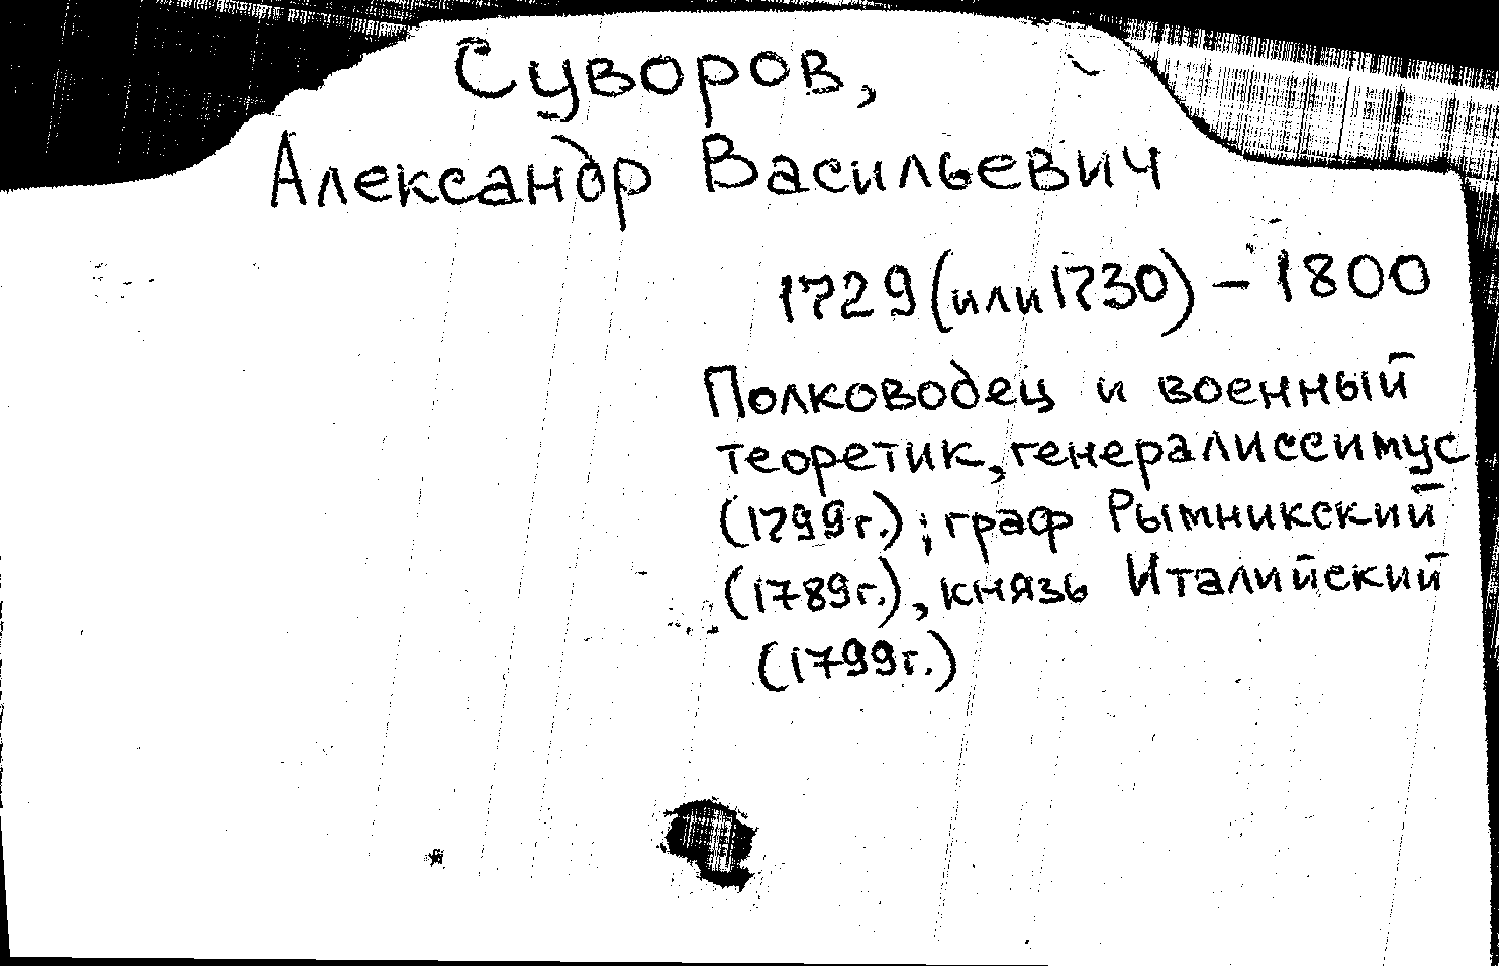 Суворов,
Александр Васильевич
1729 (или 1730) – 1800
Полководец и военный
теоретик, генералиссимус
(1799г.); граф Рымникский
(1789г.), князь Италийский
(1799г.)